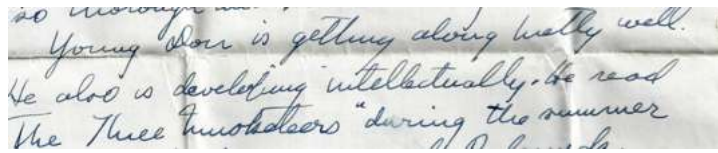 so thorough
Young Don is getting along pretty well.
He also is developing intellectually. He read
The Three Musketeers" during the summer